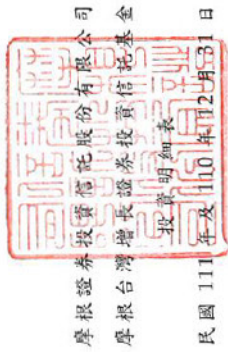 摩根證券投資信託股份有限公司
摩根台灣增長證券投資信託基金
投資明細表
民國 111 年及 110 年 12 月 31 日